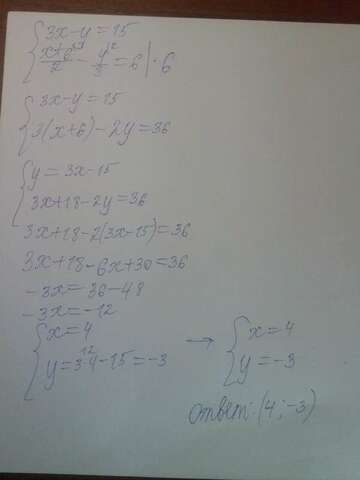 {3x-y=15
{(x+6)³⁾/2 - y²⁾/3 = 6 | · 6
{3x-y=15
{3(x+6)-2y=36
{y=3x-15
{3x+18-2y=36
3x+18-2(3x-15)=36
3x+18-6x+30=36
-3x=36-48
-3x=-12
{x=4 → {x=4
{y=3·4-15=-3 {y=-3
12
ответ: (4;-3)